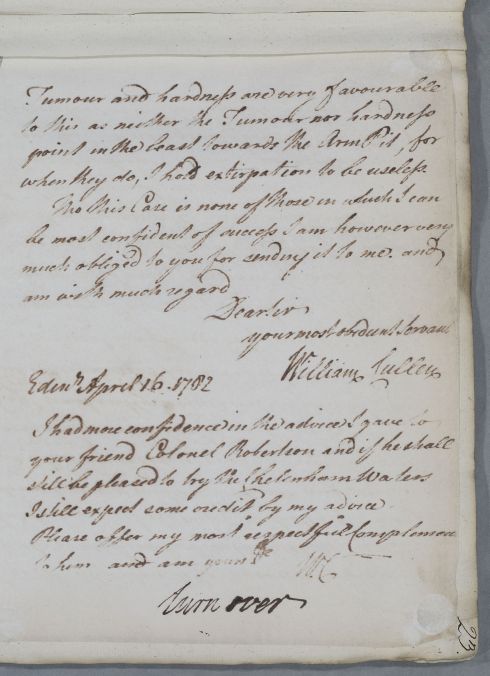 Tumour and hardness are very favourable
to this as neither the Tumour nor hardness
point in the least towards the Arm Pit, for
when they do, I hold extirpation to be useless.
Tho this Case is none of those in which I can
be most confident of success I am however very
much obliged to you for sending it to me. and
am with much regard
Dear Sir
your most obedient Servant
William Cullen
Edinr. April 16. 1782
I had more confidence in the advice I gave to
your friend Colonel Robertson and if he shall
still be pleased to try the Cheltenham Waters
I still expect some credit by my advice
Please offer my most respectfull Complement
to him and am yours
WC
turn over